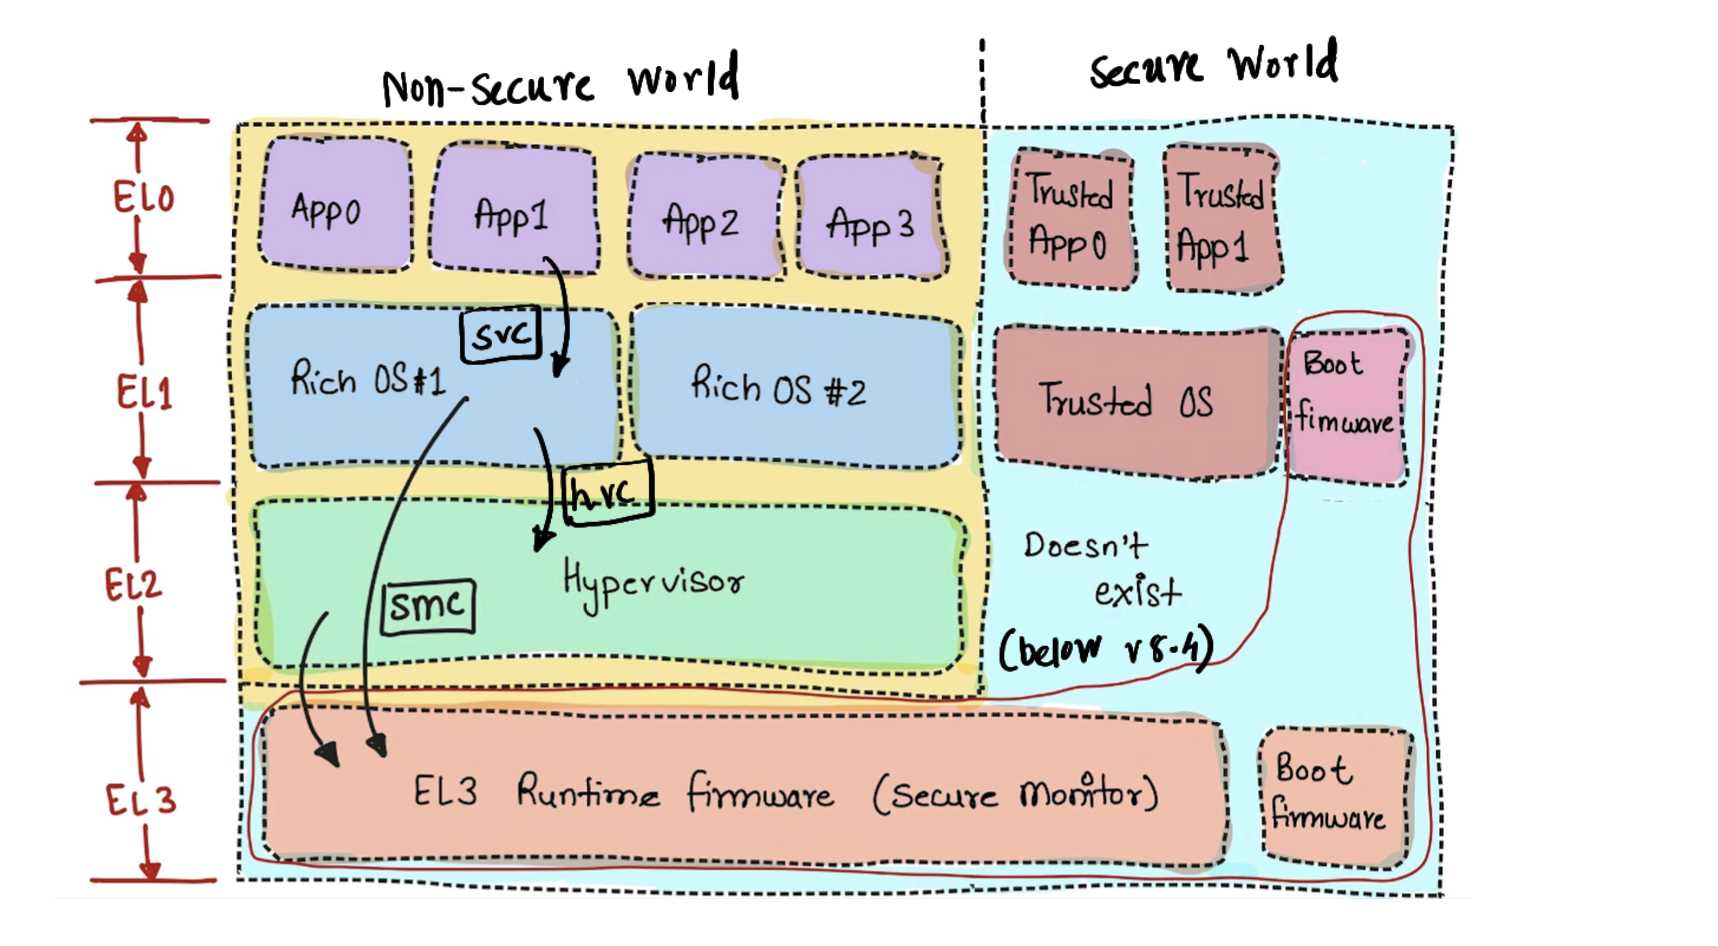 Non-secure World
Secure World
EL0
App0
App1
App2
App3
Trusted
App0
Trusted
App1
EL1
svc
Rich OS#1
Rich OS #2
Trusted OS
Boot
fimware
EL2
hvc
Hypervisor
smc
Doesn't
exist
(below v8.4)
EL3
EL3 Runtime firmware (Secure Monitor)
Boot
firmware